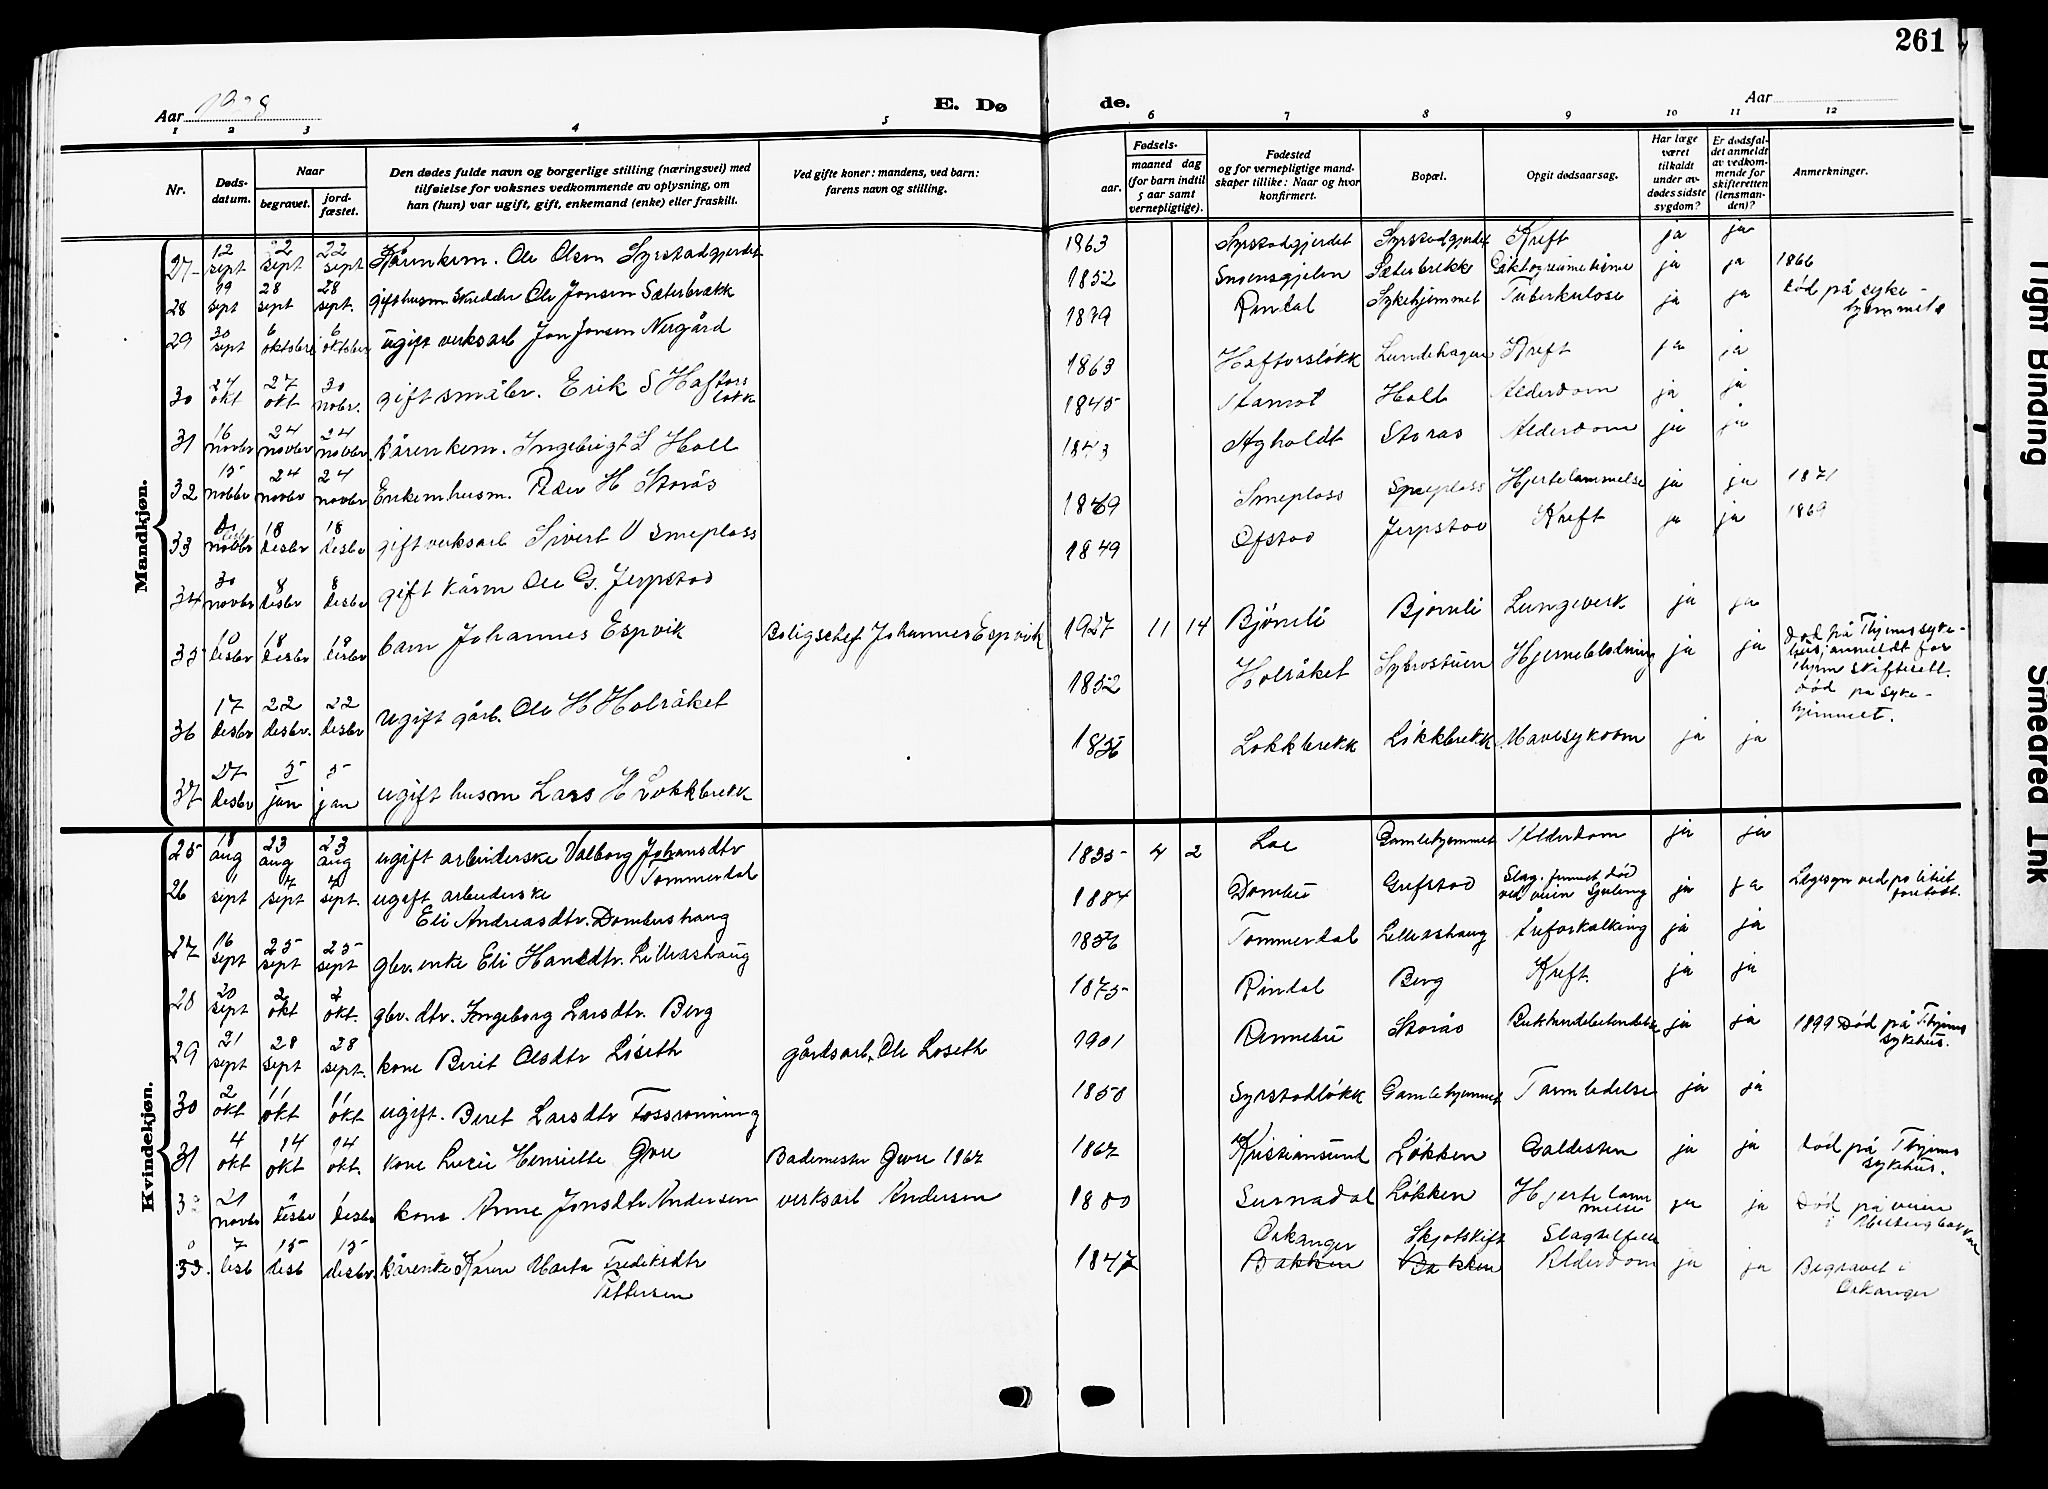 261
Aar 1928
E. Dø
de.
Aar
1 2 3 4 5 6 7 8 9 10 11 12
Nr.
Døds-
datum.
Naar
begravet.
jord-
fæstet.
Den dødes fulde navn og borgerlige stilling (næringsvei) med
tilføielse for voksnes vedkommende av oplysning, om
han (hun) var ugift, gift, enkemand (enke) eller fraskilt.
Ved gifte koner: mandens, ved barn:
farens navn og stilling.
Fødsels-
aar.
maaned dag
(for barn indtil
5 aar samt
vernepligtige).
Fødested
og for vernepligtige mand-
skaper tillike: Naar og hvor
konfirmert.
Bopæl.
Opgit dødsaarsag.
Har læge
været
tilkaldt
under av-
dødes sidste
sygdom?
Er dødsfal-
det anmeldt
av vedkom-
mende for
skifteretten
(lensman-
den)?
Anmerkninger.
Mandkjøn.
27 12 sept 22 sept Kårenkem. Ole Olsen Syrstadgjerdet 1863 Syrstadgjerdet Syrstadgjerdet Kreft ja ja
28 19 sept 28 sept 28 sept. gift husm Skredder Ole Jonsen Sæterbrækk 1852 Sæterbrekk ja ja 1866
29 30 sept 6 oktober 6 oktbr ugift verksarb Jon Jonsen Nergård 1879 Rindal Sykehjemmet Tuberkulose ja ja død på syke-
hjemmet
30 27 okt 30 nobr. gift småbr. Erik S Haftors
løkk 1863 Haftorsløkk Lundehagen Kreft ja ja
31 16 novbr 24 novbr 24 novbr. kårenkem. Ingebrigt L Holl 1845 Holl Alderdom ja ja
32 15 nobbr 24 novbr 24 novbr Enkem husm. Peder H Storås 1843 Agholdt Storås Alderdom ja ja
33 18 desbr 18 desbr gift verksarb Sivert O Smeplass 1869 Smeplass Hjertelammelse ja ja 1871
34 30 novbr 8 desbr 8 desbr gift kårm Ole G. Jerpstad 1849 Ofstad Jerpstad Kreft ja ja 1869
35 10 desbr 18 desbr 18 desbr barn Johannes Espvik Boligschef Johannes Espvik 1927 11 14 Bjørnli Bjørnli Lungeverk ja ja
36 17 desbr 22 desbr. 22 desbr ugift gårb. Ole H Holråket 1852 Holråket Sybrostuen Hjerneblødning ja ja død på Thjems syke-
hus, anmeldt for
Thjem skifterett.
død på syke-
hjemmet.
37 27 desbr 5 jan 5 jan ugift husm Lars H Løkkbrekk 1836 Løkkbrekk Løkkbrekk Mavesykdom ja ja
Kvindekjøn.
25 18 aug 23 aug 23 aug ugift arbeiderske Valborg Johansdtr
Tommerdal 1835 4 2 Loe Gamlehjemmet Alderdom ja ja
26 1 sept 7 sept 7 sept. ugift arbeiderske
Eli Andreasdtr. Domlushaug 1884 Domlu Grefstad Slag. funnet død
ved veien ja ja Likgsyn ved politiet
foretatt.
27 16 sept 25 sept 25 sept gbr. enke Eli Hansdtr. Lilleåshaug 1836 Tommerdal Lilleåshaug Åreforkalkning ja ja
28 20 sept 2 okt 2 okt. gbr. dtr. Ingeborg Larsdtr. Berg 1875 Rindal Berg Kreft. ja ja
29 21 sept 28 sept 28 sept. kone Berit Olsdtr Løseth gårdsarb. Ole Løseth 1901 Rennebu Storås ja ja 1899 Død på Thjems
sykehus.
30 2 okt 11 okt 11 okt ugift. Beret Larsdtr Fossrønning 1850 Syrstadløkk Gamlehjemmet ja ja
31 4 okt 14 okt 14 okt. kone Lucie Henriette Gure Bademester Gure 1867 1867 Kristiansund Løkken Galdesten ja ja død på Thjems
sykehus.
21 novbr desbr desbr kone Anne Jonsdtr Andersen verksarb Andersen 1880 Surnadal Løkken Hjertelam
melse ja ja Død på veien
33. 7 desb 15 desb 15 desbr. kårenke Karen Marta Fredriksdtr
Pettersen 1847 Orkanger
Bakken Skjøtskift
Bakken Slagtilfelle
Alderdom ja ja Begravet i
Orkanger
Tight Binding
Smeared Ink